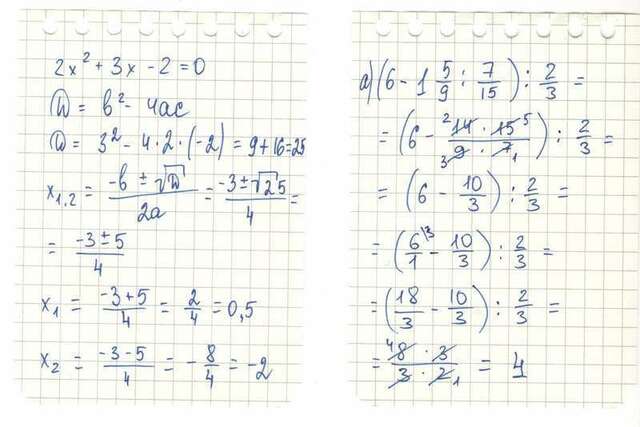 2x² + 3x - 2 = 0
D = b² - 4ac
D = 3² - 4·2·(-2) = 9+16=25
x₁,₂ = (-b ± √D)/(2a) = (-3 ± √25)/4 =
= (-3 ± 5)/4
x₁ = (-3+5)/4 = 2/4 = 0,5
x₂ = (-3-5)/4 = -8/4 = -2
а) (6 - 1 5/9 : 7/15) : 2/3 =
= (6 - (²14 · 15⁵)/(₃9 · 7₁)) : 2/3 =
= (6 - 10/3) : 2/3 =
= (6\³/1 - 10/3) : 2/3 =
= (18/3 - 10/3) : 2/3 =
= (⁴8 · 3)/(3 · 2₁) = 4